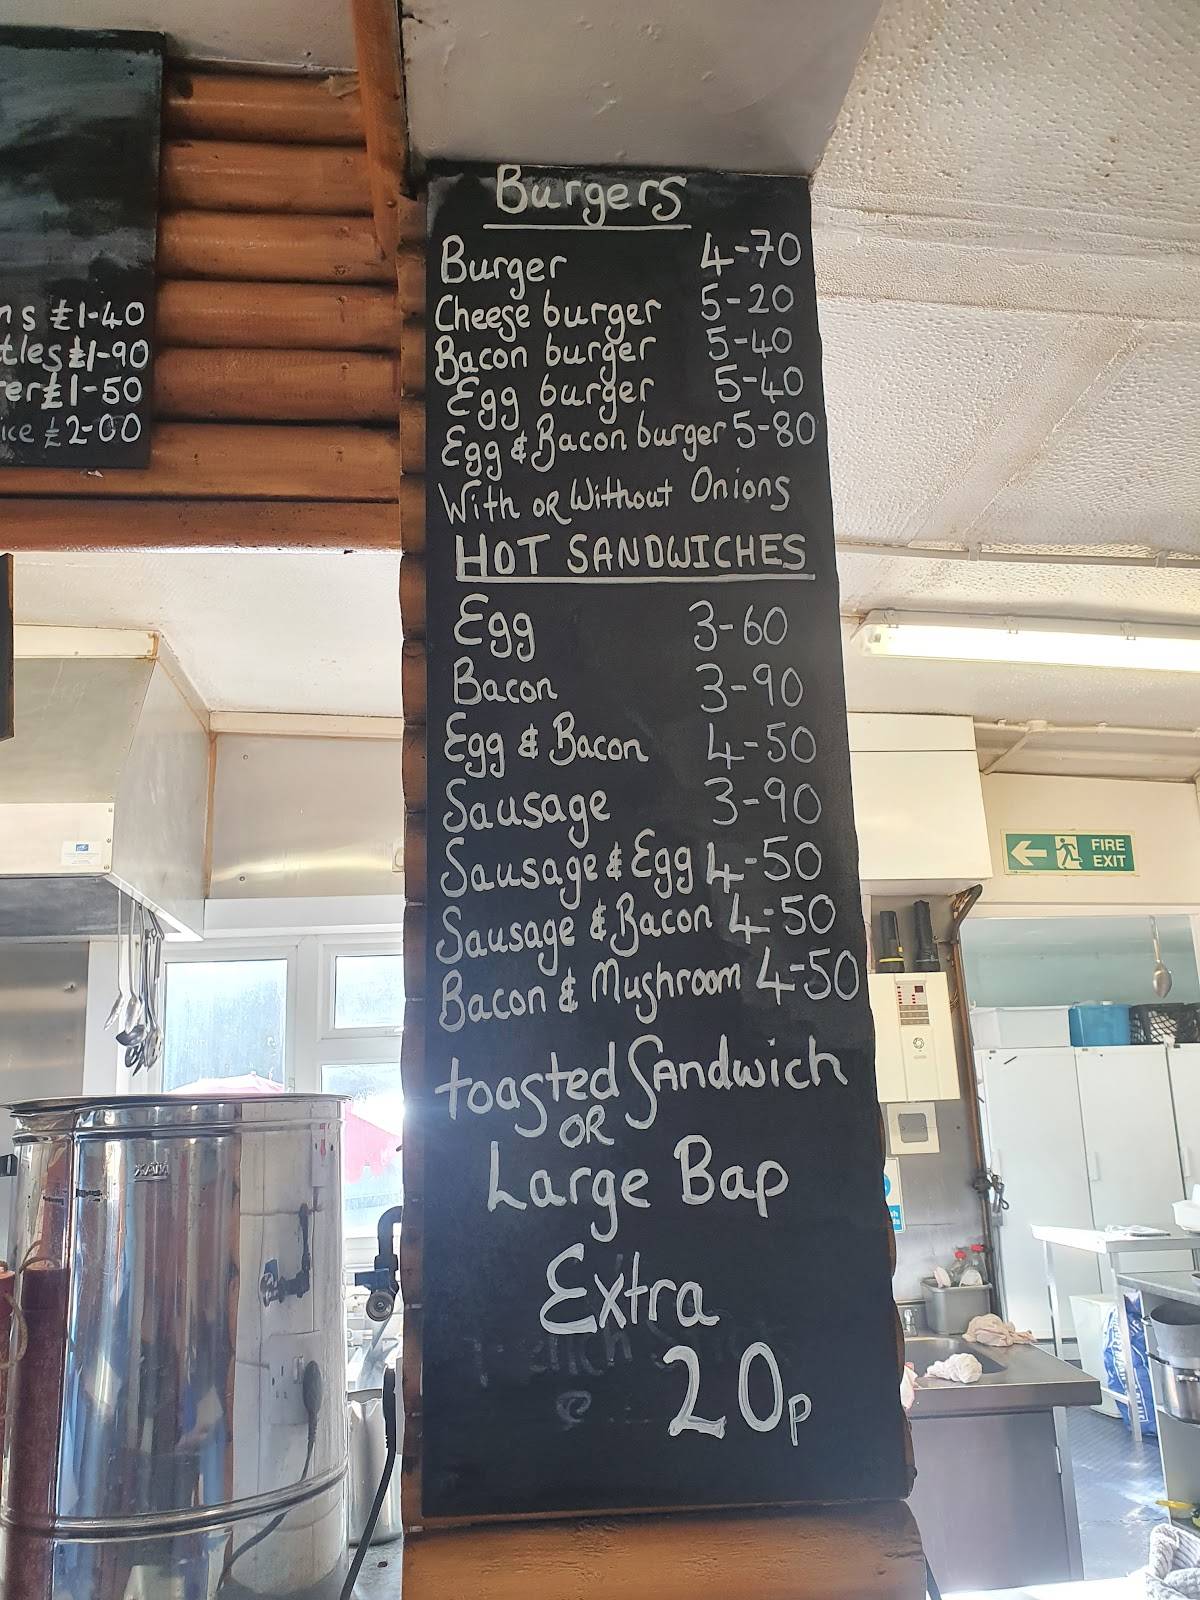 £1-40
£1-90
£1-50
£2-00
Burgers
Burger 4-70
Cheese burger 5-20
Bacon burger 5-40
Egg burger 5-40
Egg & Bacon burger 5-80
With or Without Onions
HOT SANDWICHES
Egg 3-60
Bacon 3-90
Egg & Bacon 4-50
Sausage 3-90
Sausage & Egg 4-50
Sausage & Bacon 4-50
Bacon & Mushroom 4-50
toasted Sandwich
OR
Large Bap
Extra
20p
FIRE
EXIT